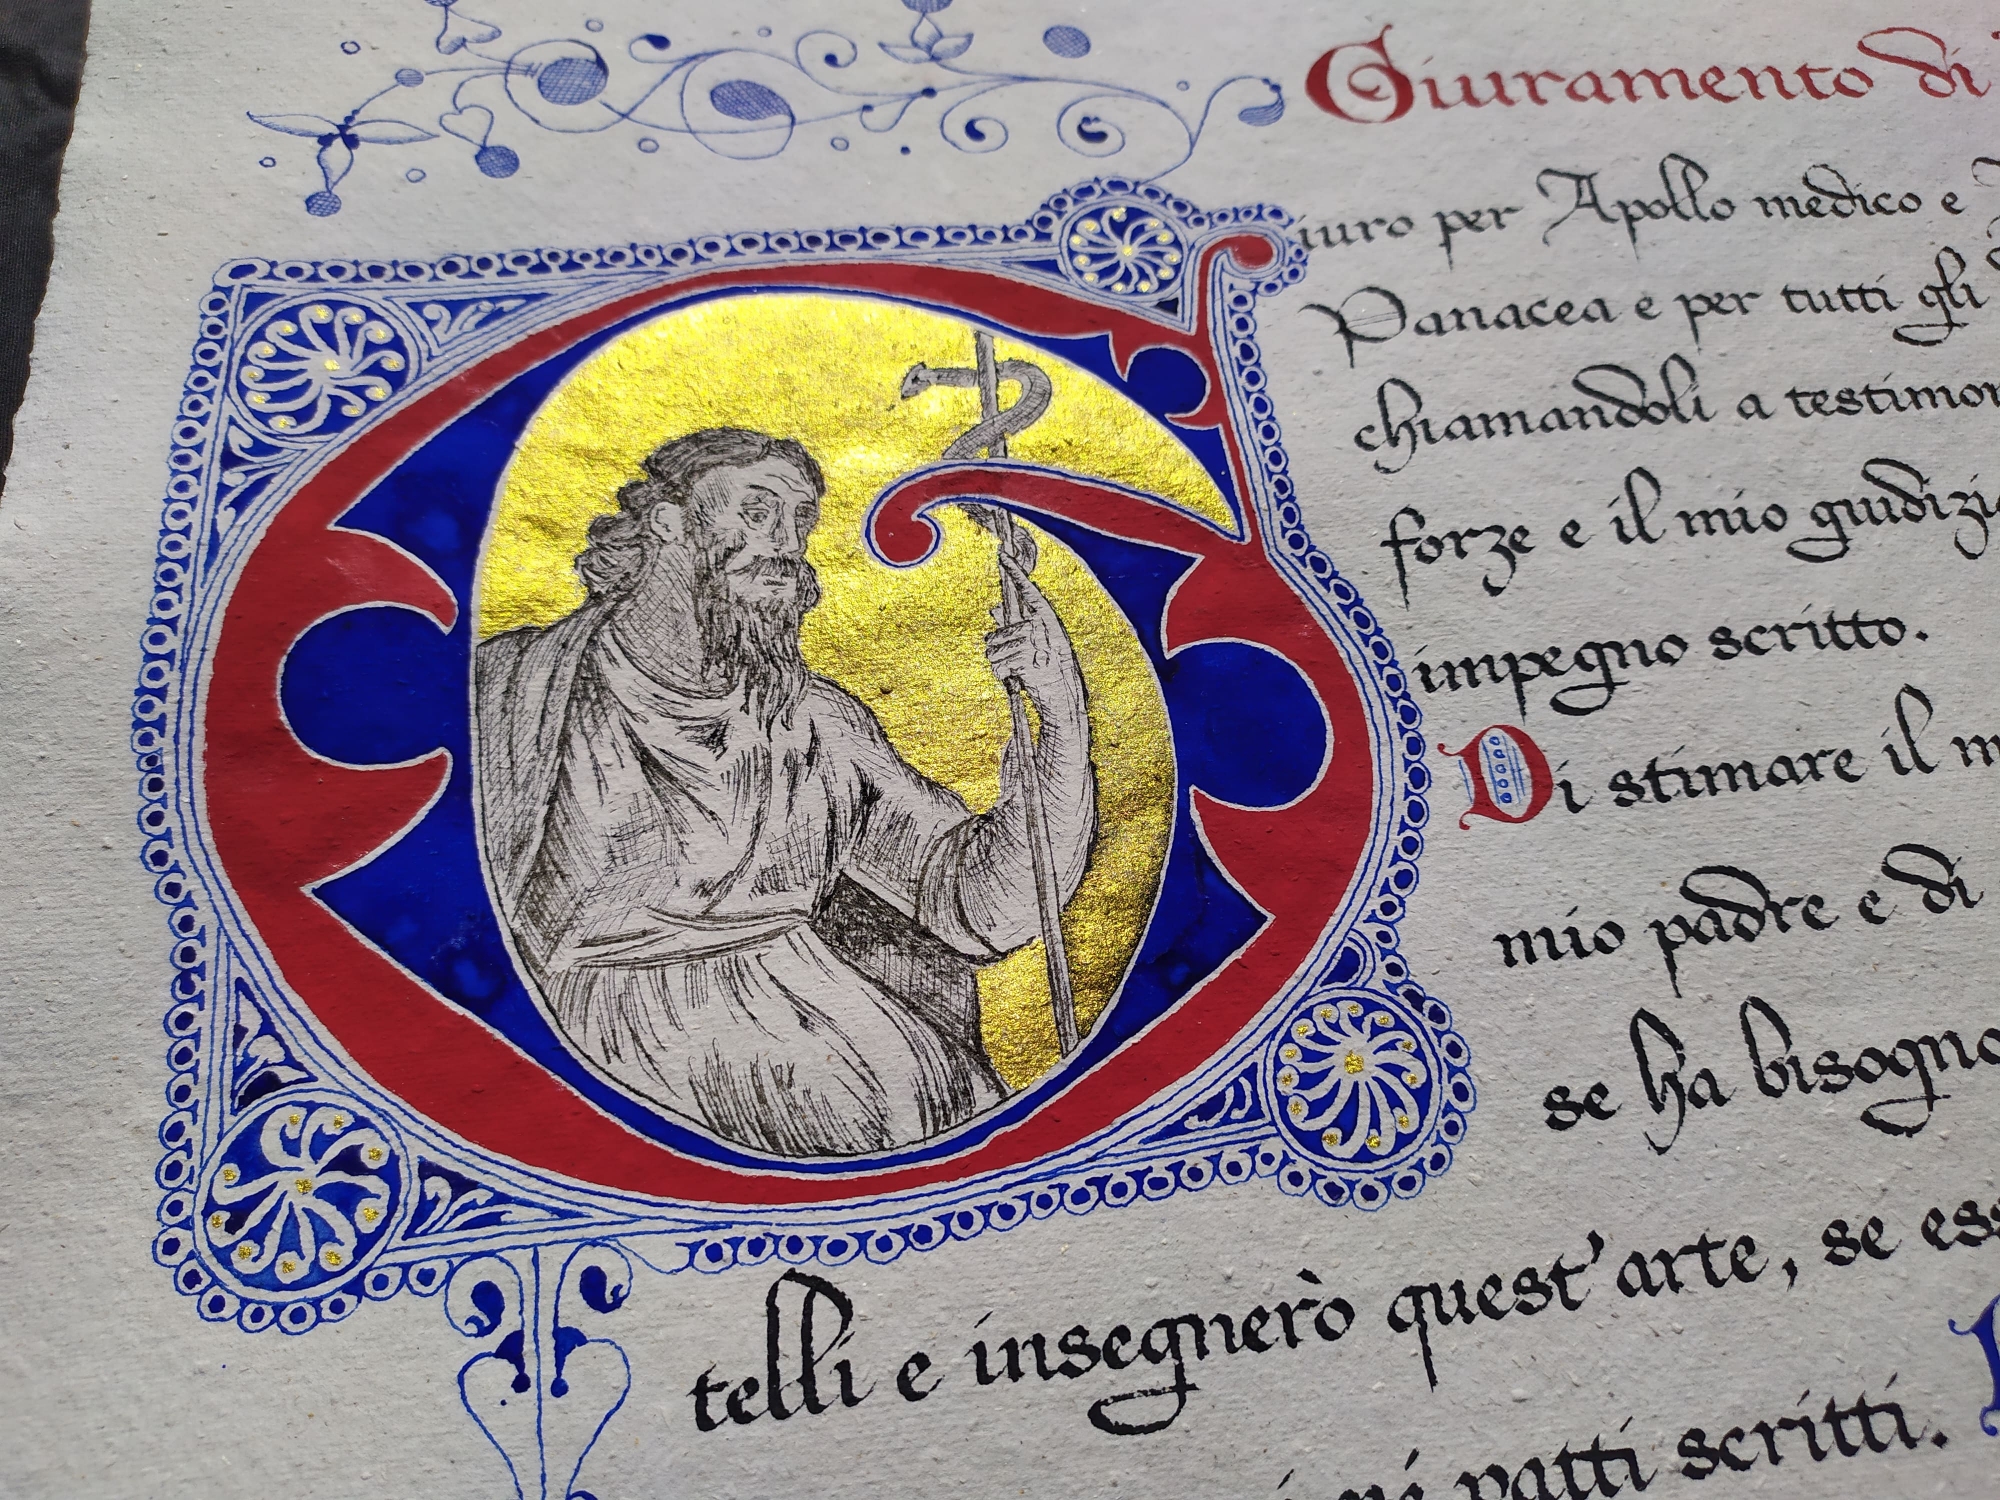 Giuramento di
Giuro per Apollo medico e
Panacea e per tutti gli
chiamandoli a
forze e il mio
impegno scritto.
Di stimare il
mio padre e di
se ha bisogno
telli e insegnerò quest'arte, se
patti scritti.